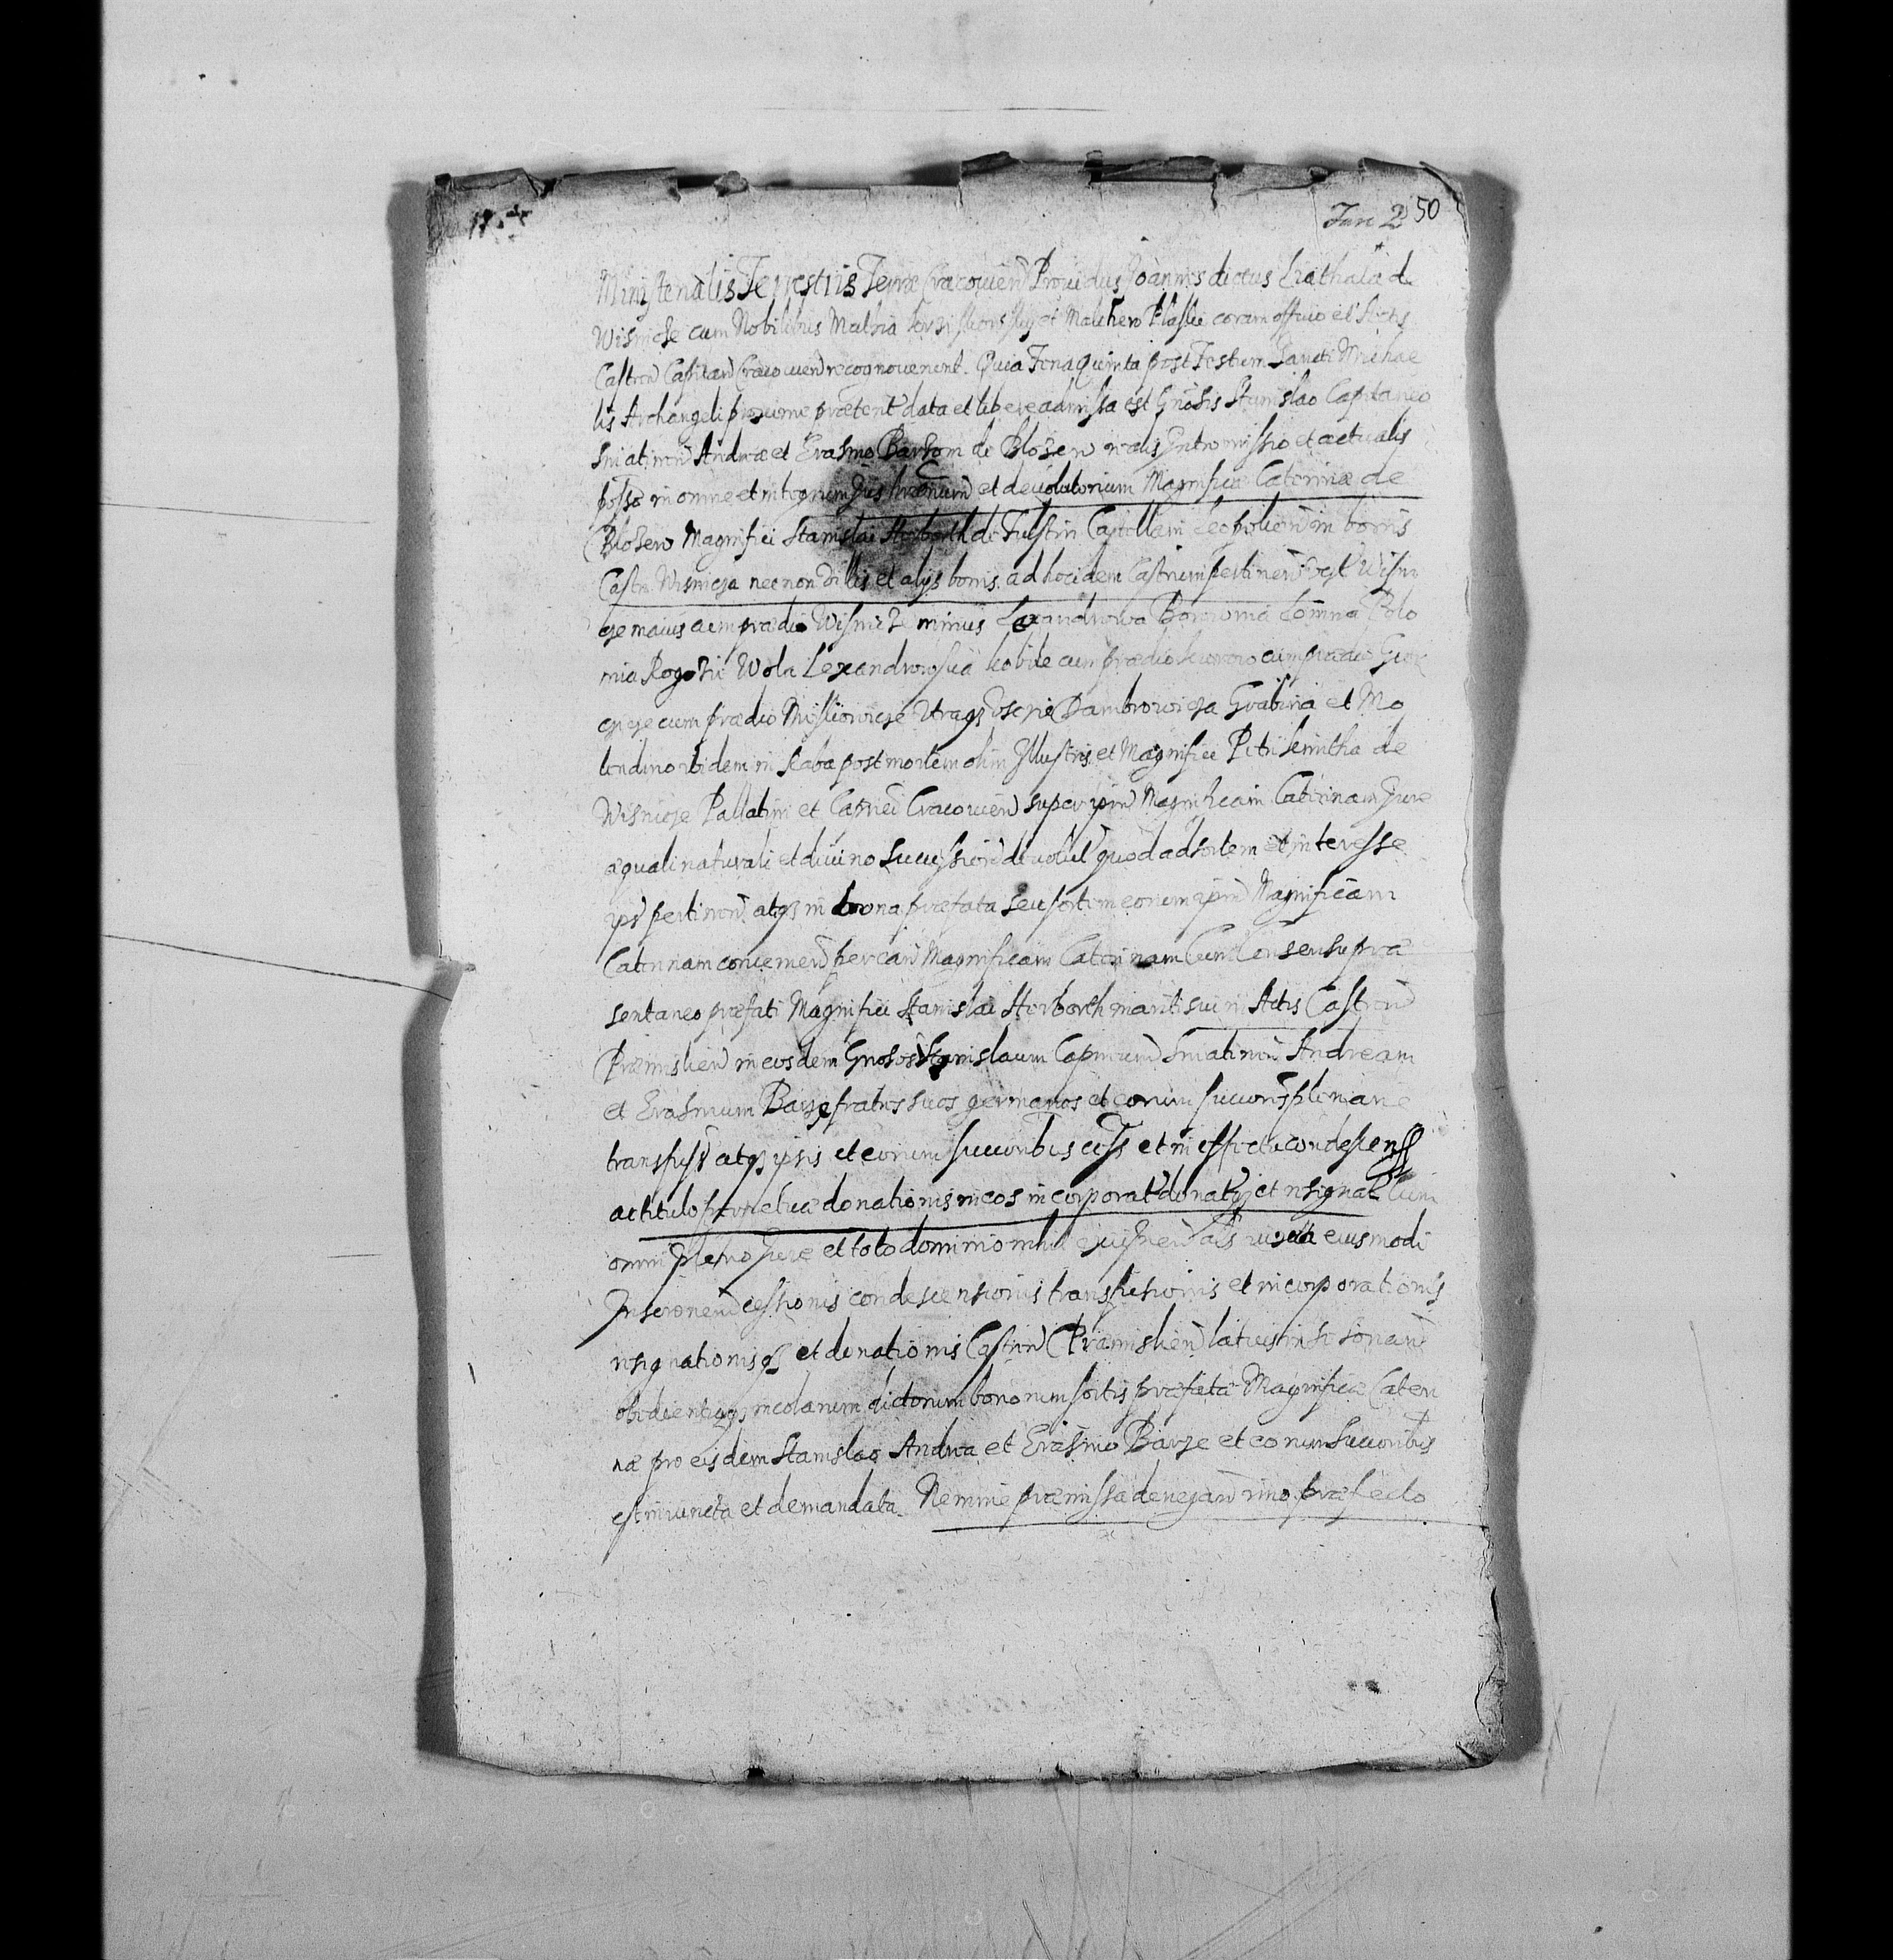 Jan 2 50
Ministerialis Terrestris Terræ Cracovien Providus Joannes dictus
Wisnicze cum Nobilibus Mathia et coram officio et Actis
Castren Capitan Cracovien recognoverunt. Quia Feria Quinta post Festum Sancti Michae
lis Archangeli proxime præterit data et libere admissa est Gnosis Stanislao Capitaneo
Sniatinen Andreæ et Erasmo Barzom de Blozew realis Intromissio et actualis
posso in omne et integrum Jus et devolutorium Magnificæ Caterinæ de
Blozew Magnifici Stanislai Herborth de Fulstin Castellani Leopolien in bonis
Castri Wisnicza necnon villis et alijs bonis ad hocidem Castrum pertinen Wisni
cze maius cum prædio Wisnicz minus Borowna Lomna Polo
mia Rogozie Wola Lexandrowska Kobile cum prædio cum prædio
cum prædio Utraq Dambrowicza Grabina et Mo
lendino ibidem in Raba post mortem olim Illustris et Magnifici Petri Kmitha de
Wisnicze Pallatini et Cracovien super ipm Magnificam Caterinam Jure
æquali naturali et divino Succession devolut quod ad sortem et interesse
ips pertinen atq in bona præfata seu sortem eorum ipm Magnificam
Caterinam concernen per ean Magnificam Caterinam Cum Consensu præ
sentaneo præfati Magnifici Stanislai Herborth mariti sui in Actis Castren
Præmislien in eosdem Gnosos Stanislaum Sniatinen Andream
et Erasmum Barze fratres suos germanos et eorum succores plenarie
transfuss atq ipsis et eorum succoribus cess et in effectu condescenss
ac titulo perpetuæ donationis in eos incorporat donatq et resignat cum
omni pleno Jure et toto dominio nihil als iuxta eiusmodi
Inscronem cessionis condescensionis transfusionis et incorporationis
resignationisq et donationis Castren Præmislien latius in se sonan
obedientiaq incolarum dictorum bonorum sortis præfatæ Magnificæ Cateri
næ pro eisdem Stanislao Andrea et Erasmo Barze et eorum succoribus
est iniuncta et demandata. Nemine præmissa denegan